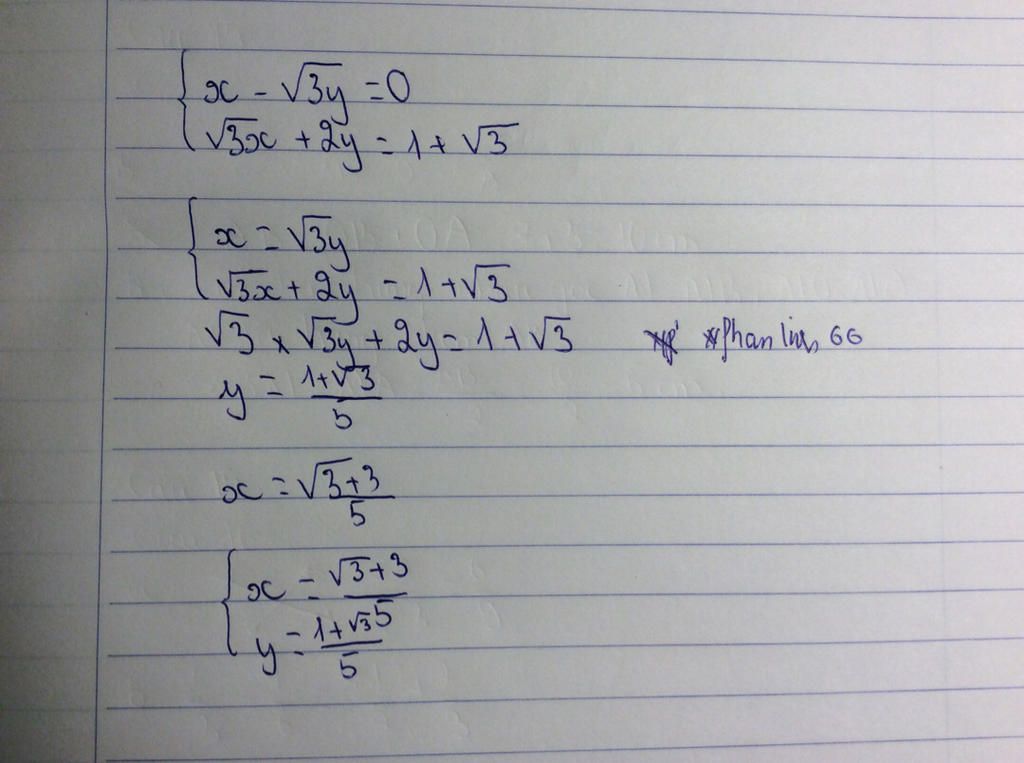 x - √3y = 0
√3x + 2y = 1 + √3
x = √3y
√3x + 2y = 1 + √3
√3 × √3y + 2y = 1 + √3
y = (1+√3)/5
x = (√3+3)/5
x = (√3+3)/5
y = (1+√3)/5